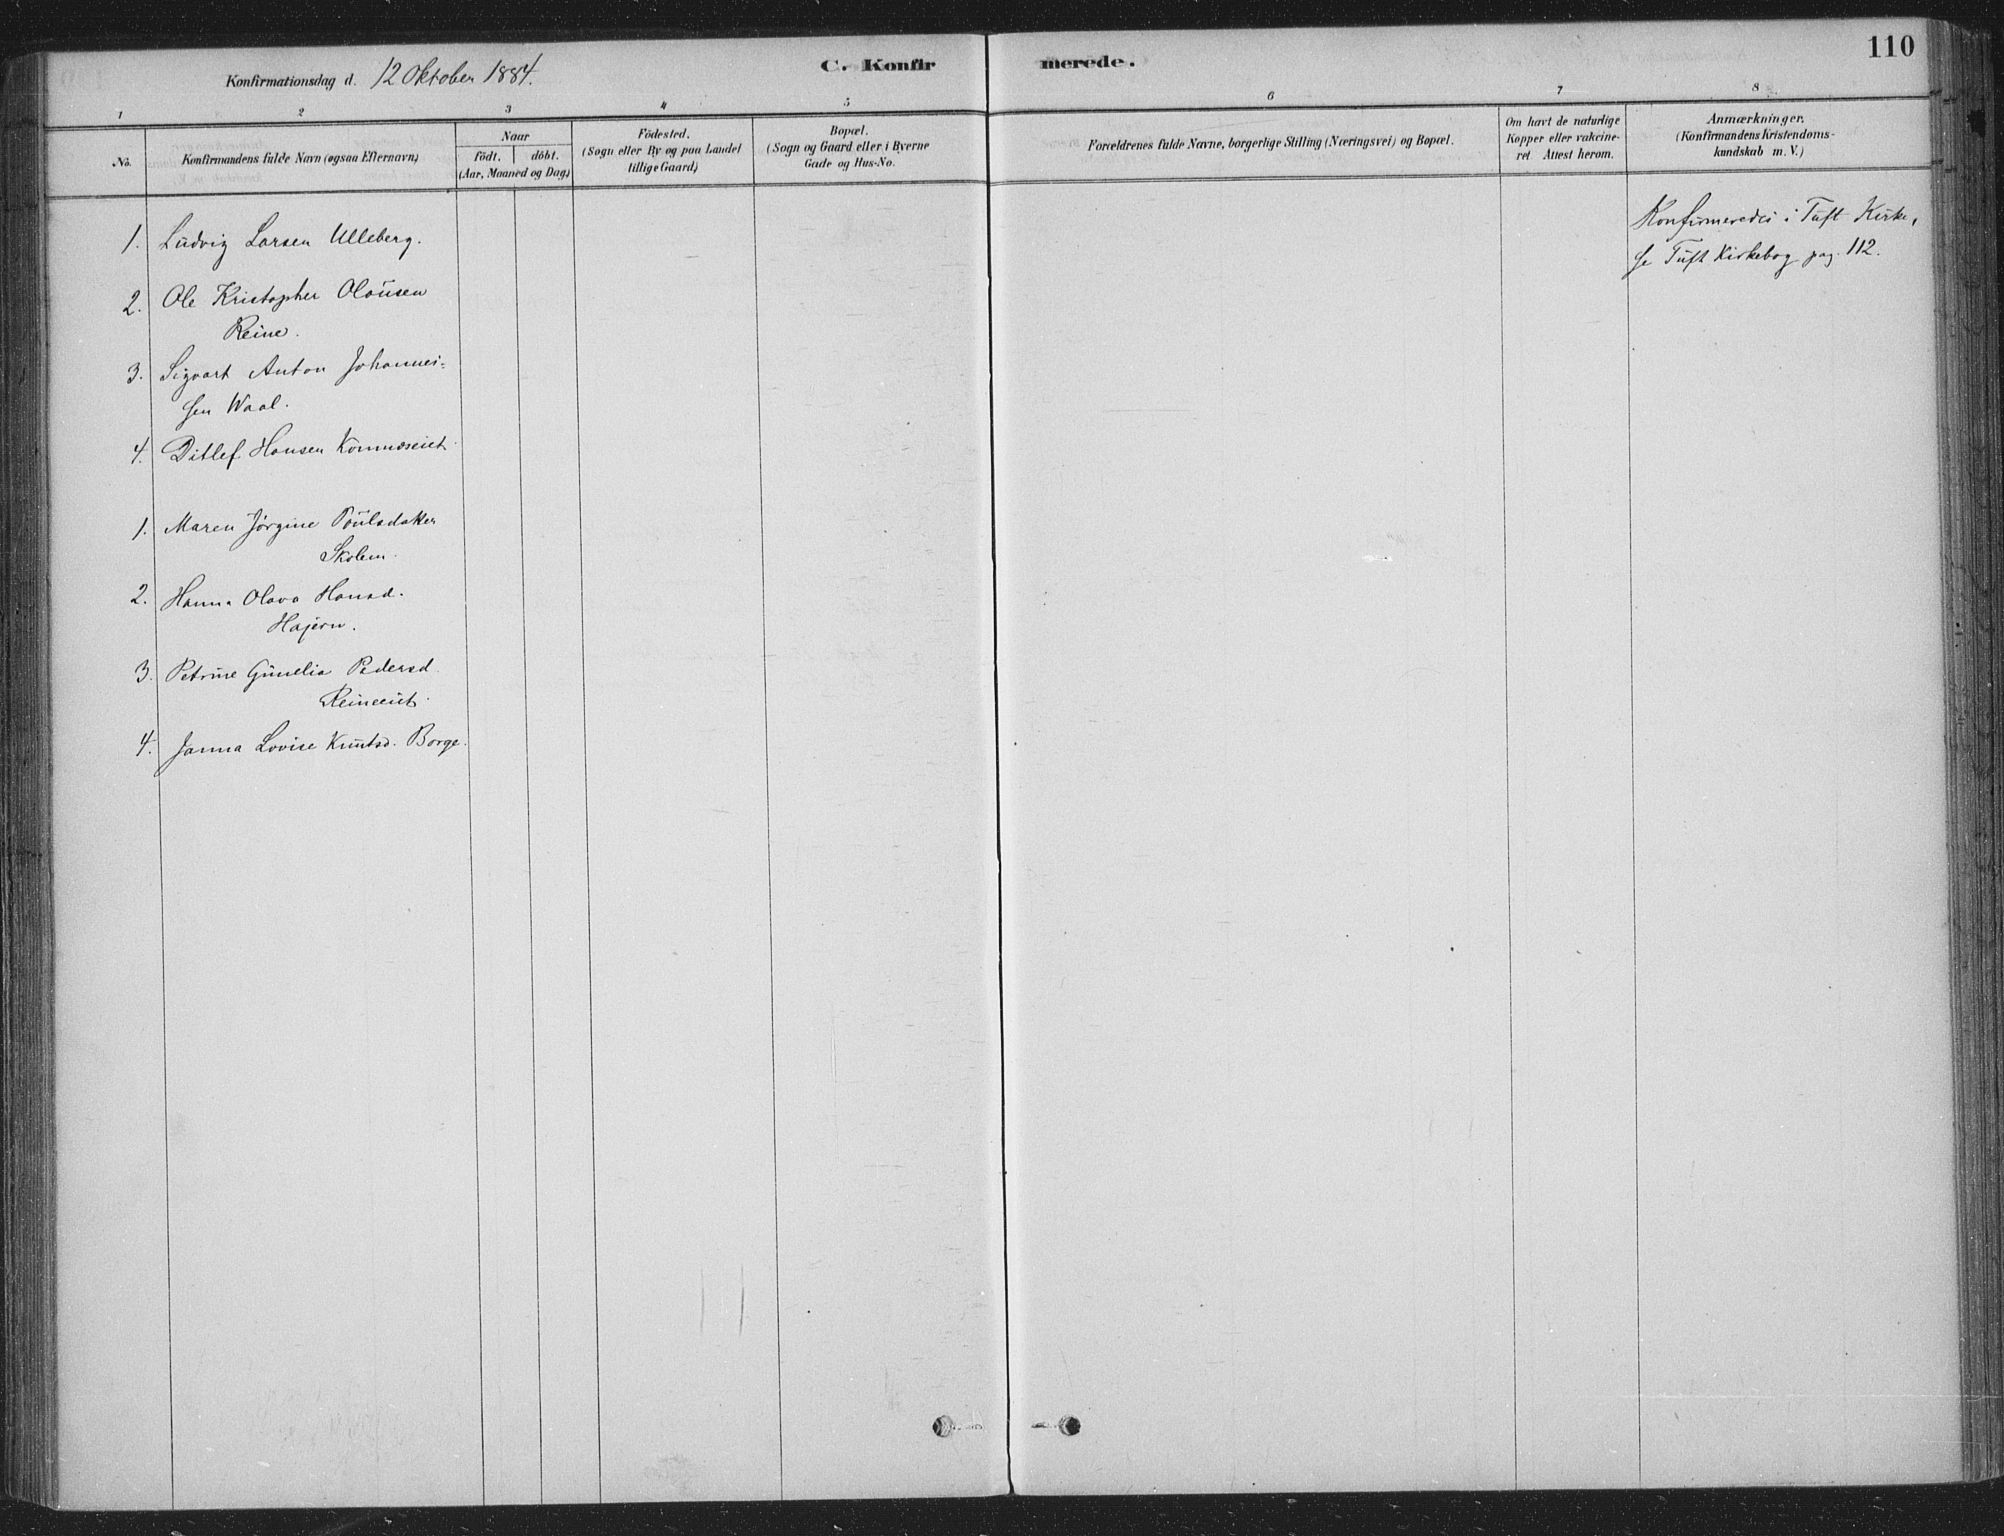 110
Konfirmationsdag d. 12 Oktober 1884.
C. Konfirmerede.
1 2 3 4 5 6 7 8
No.
Konfirmandens fulde Navn (ogsaa Efternavn)
Naar
födt. döbt.
(Aar, Maaned og Dag)
Födested.
(Sogn eller By og paa Landet
tillige Gaard)
Bopæl.
(Sogn og Gaard eller i Byerne
Gade og Hus-No.
Forældrenes fulde Navne, borgerlige Stilling (Næringsvei) og Bopæl.
Om havt de naturlige
Kopper eller vakcine-
ret Attest herom.
Anmærkninger.
(Konfirmandens Kristendoms-
kundskab m. V.)
1. Ludvig Larsen Ulleberg.
2. Ole Kristopher Olausen
Reine.
3. Sigvart Anton Johannes-
sen Waal.
4. Ditlef Hansen
1. Maren Jørgine
Skolem.
2. Hanna Olava Hansd.
Hajern.
3. Petrine Gunelia Pedersd.
Reineeiet.
4. Janna Lovise Knutsd. Borge.
Konfirmeredes i Tuft Kirke,
se Tuft Kirkebog pag. 112.